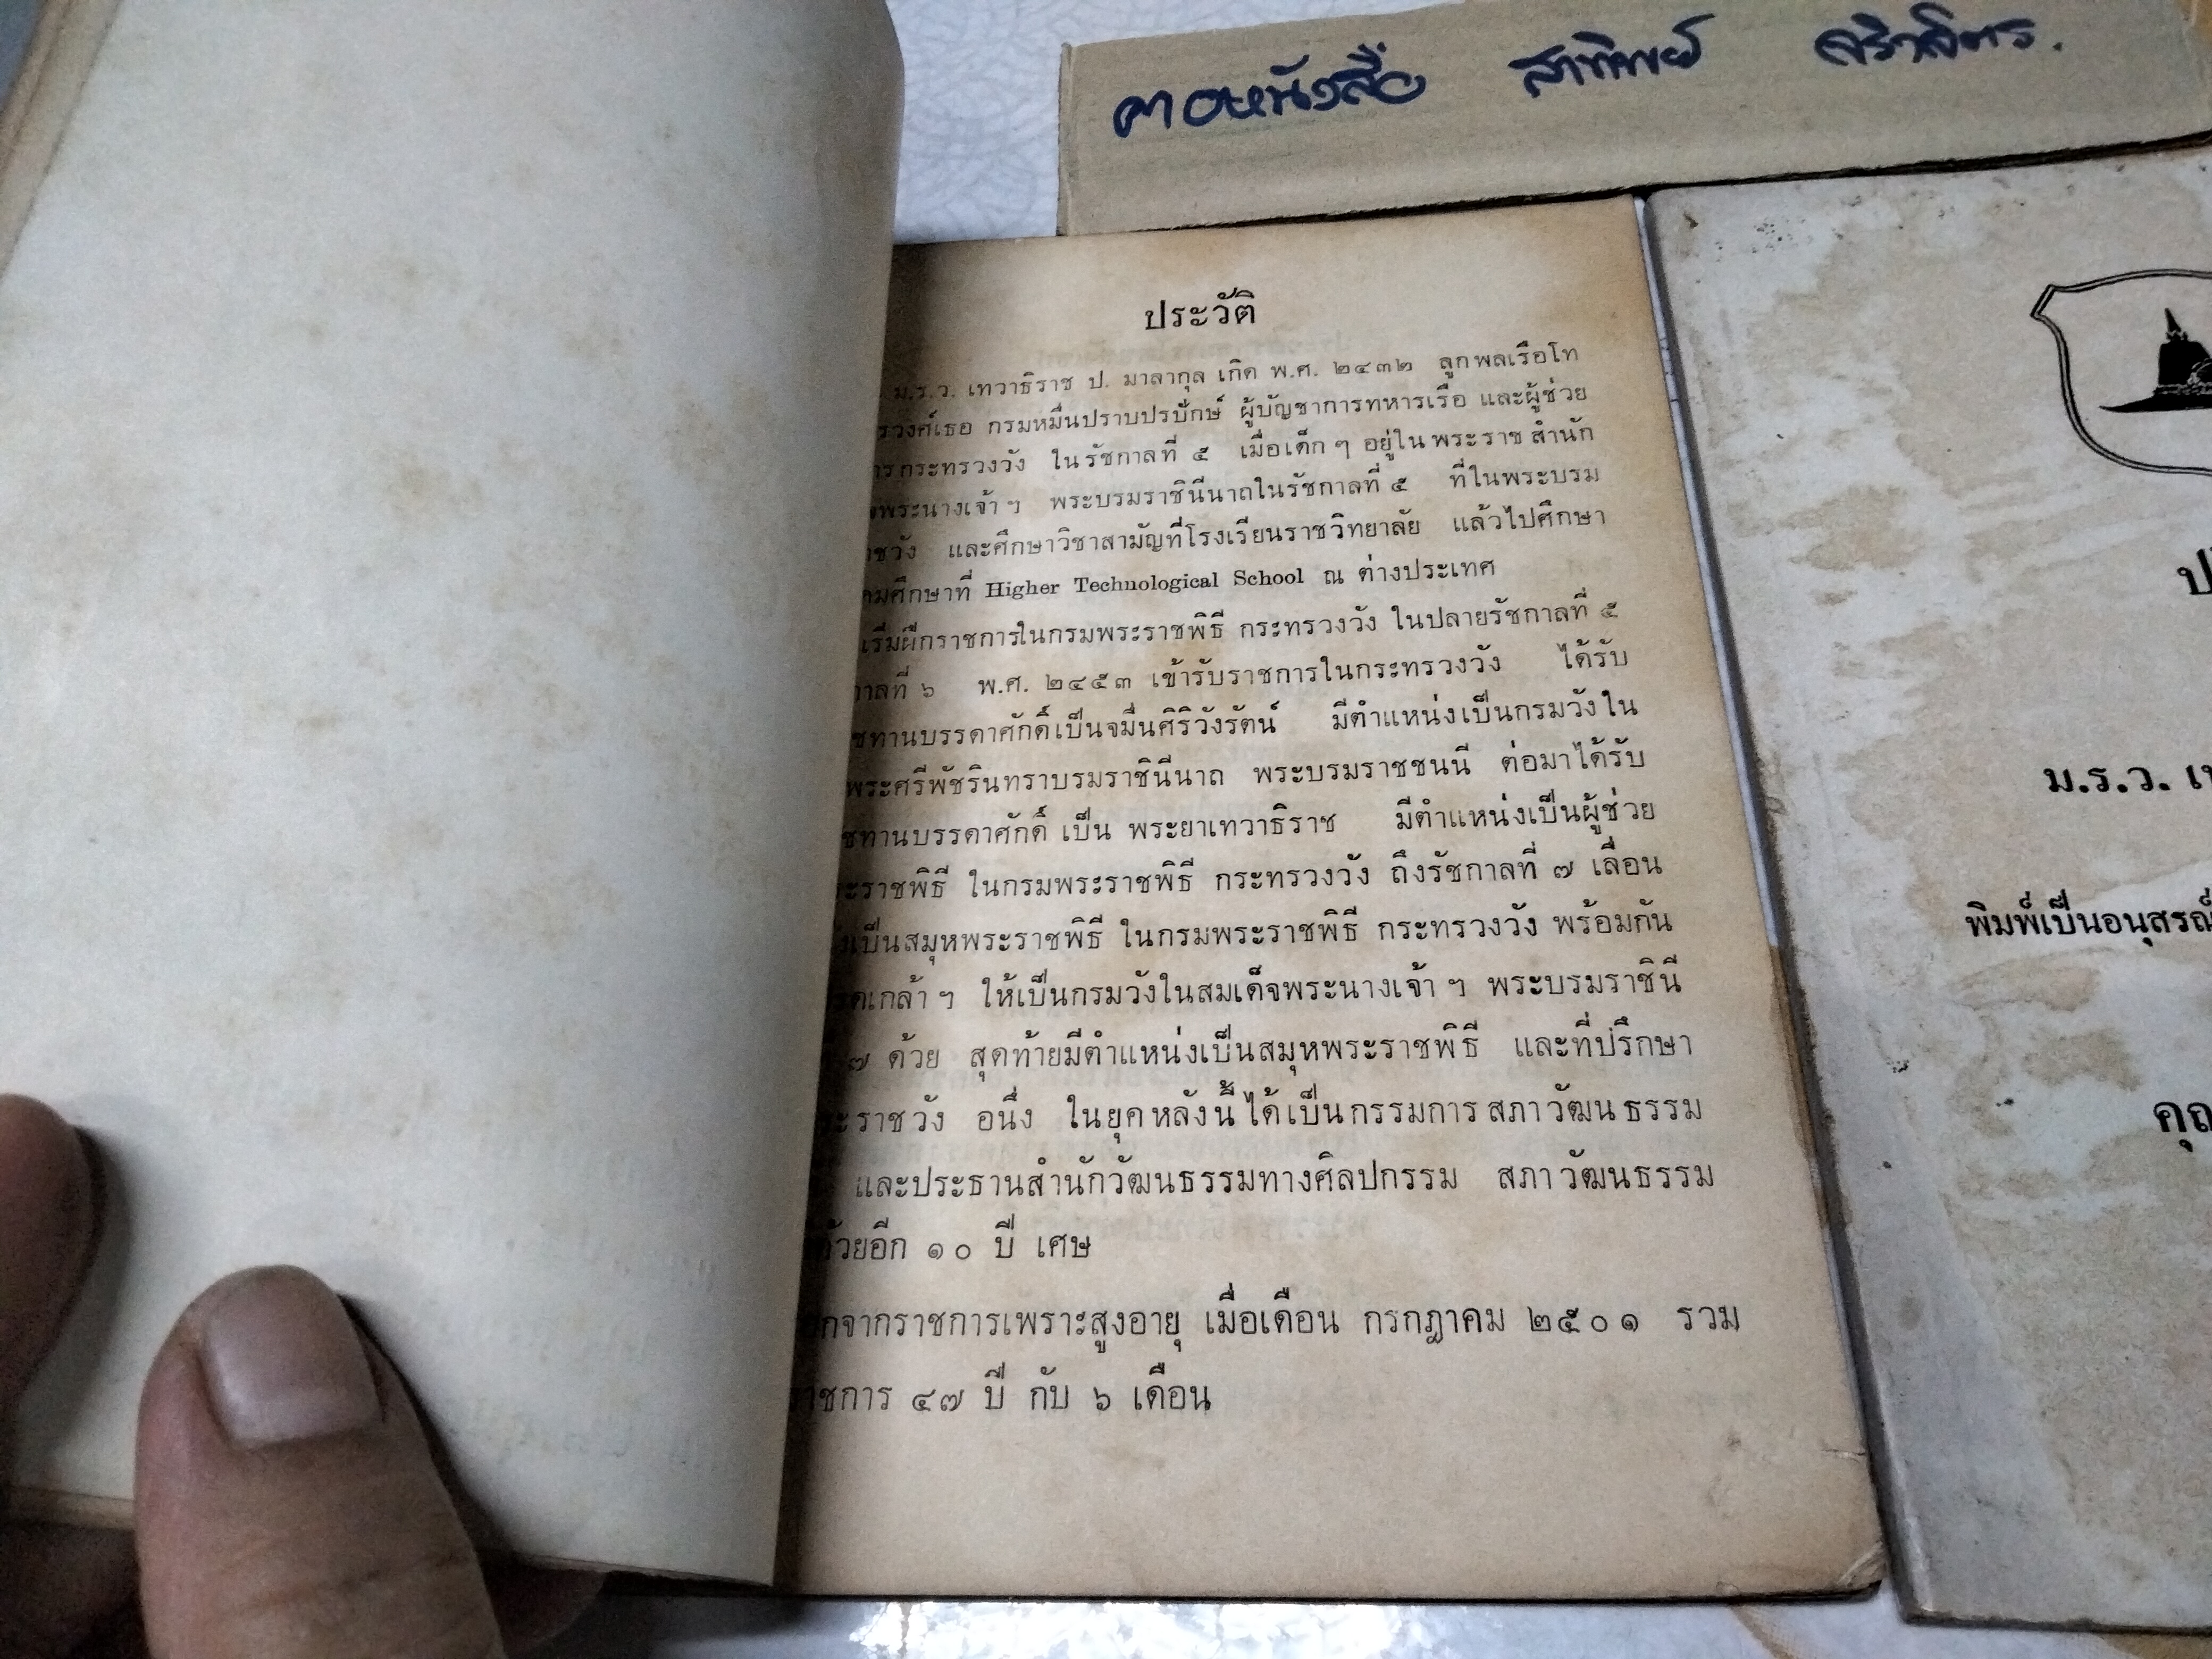 ประวัติ
ม.ร.ว. เทวาธิราช ป. มาลากุล เกิด พ.ศ. ๒๔๓๒ ลูกพลเรือโท
รวงศ์เธอ กรมหมื่นปราบปรปักษ์ ผู้บัญชาการทหารเรือ และผู้ช่วย
กระทรวงวัง ในรัชกาลที่ ๕ เมื่อเด็ก ๆ อยู่ในพระราชสำนัก
พระนางเจ้า ฯ พระบรมราชินีนาถในรัชกาลที่ ๕ ที่ในพระบรม
ชวัง และศึกษาวิชาสามัญที่โรงเรียนราชวิทยาลัย แล้วไปศึกษา
มศึกษาที่ Higher Technological School ณ ต่างประเทศ
เริ่มฝึกราชการในกรมพระราชพิธี กระทรวงวัง ในปลายรัชกาลที่ ๕
าลที่ ๖ พ.ศ. ๒๔๕๓ เข้ารับราชการในกระทรวงวัง ได้รับ
ชทานบรรดาศักดิ์เป็นจมื่นศิริวังรัตน์ มีตำแหน่งเป็นกรมวังใน
พระศรีพัชรินทราบรมราชินีนาถ พระบรมราชชนนี ต่อมาได้รับ
ชทานบรรดาศักดิ์ เป็น พระยาเทวาธิราช มีตำแหน่งเป็นผู้ช่วย
ะราชพิธี ในกรมพระราชพิธี กระทรวงวัง ถึงรัชกาลที่ ๗ เลื่อน
เป็นสมุหพระราชพิธี ในกรมพระราชพิธี กระทรวงวัง พร้อมกัน
ดเกล้า ฯ ให้เป็นกรมวังในสมเด็จพระนางเจ้า ฯ พระบรมราชินี
๗ ด้วย สุดท้ายมีตำแหน่งเป็นสมุหพระราชพิธี และที่ปรึกษา
ะราชวัง อนึ่ง ในยุคหลังนี้ได้เป็นกรรมการสภาวัฒนธรรม
และประธานสำนักวัฒนธรรมทางศิลปกรรม สภาวัฒนธรรม
ด้วยอีก ๑๐ ปี เศษ
กจากราชการเพราะสูงอายุ เมื่อเดือน กรกฎาคม ๒๕๐๑ รวม
าชการ ๔๗ ปี กับ ๖ เดือน
ม.ร.ว. เท
พิมพ์เป็นอนุสรณ์
คุณ